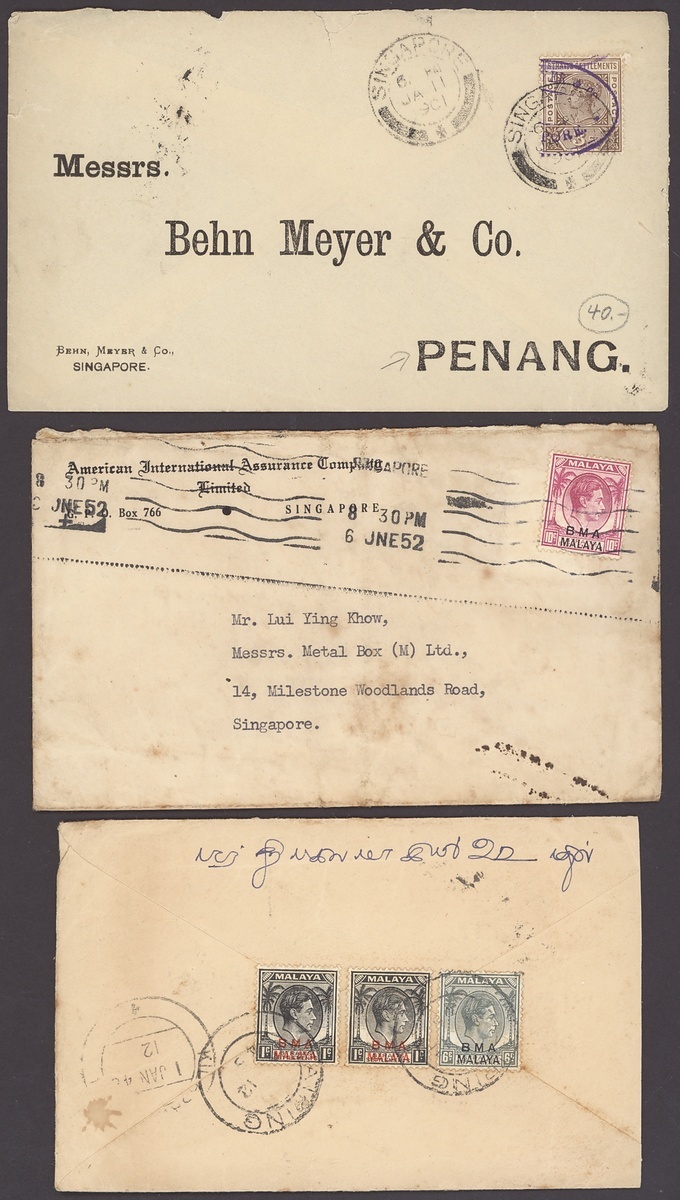 SINGAPORE
6 PM
JA 11
1901
STRAITS SETTLEMENTS
POSTAGE
Messrs.
Behn Meyer & Co.
40.-
BEHN, MEYER & Co.,
SINGAPORE.
PENANG.
American International Assurance Company
Limited
G. P. O. Box 766
SINGAPORE
SINGAPORE
8 30 PM
6 JNE 52
30 PM
JNE 52
MALAYA
BMA
MALAYA
10c 10c
Mr. Lui Ying Khow,
Messrs. Metal Box (M) Ltd.,
14, Milestone Woodlands Road,
Singapore.
MALAYA
BMA
MALAYA
1c
MALAYA
BMA
MALAYA
1c 1c
BMA
MALAYA
6c 6c
12
JAN 4